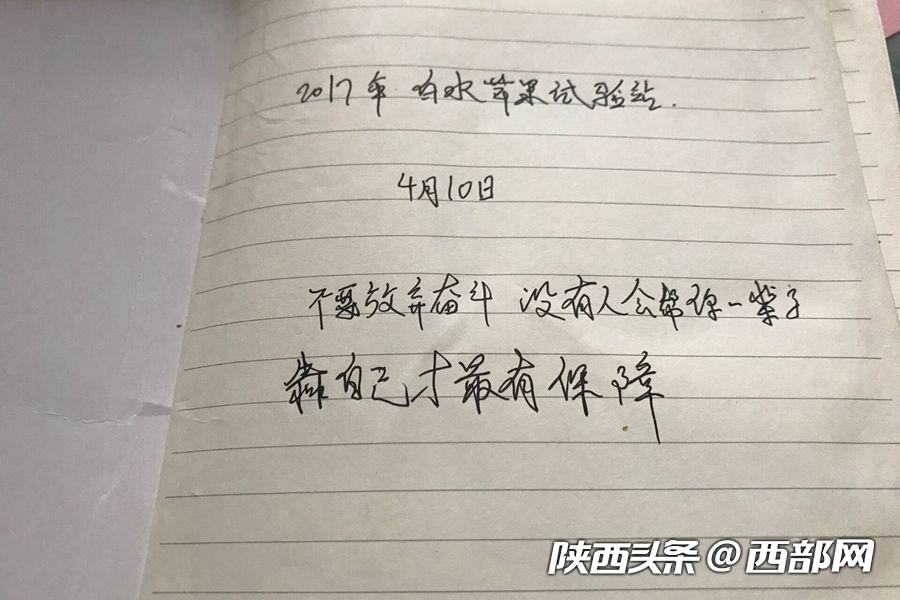 2017年 白水苹果试验站.
4月10日
不要放弃奋斗 没有人会帮你一辈子
靠自己才最有保障
陕西头条@西部网